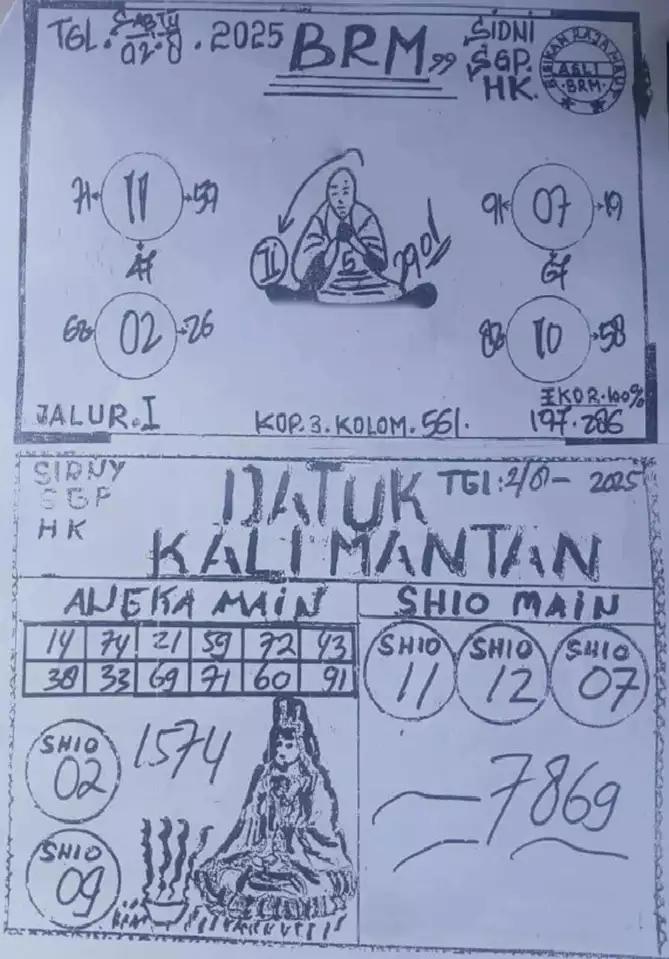 TGL. SABTU 02.8.2025 BRM" SIDNI
SGP.
HK.
ASLI
BRM
71 11 59
47
91 07 19
67
II 5 2901
62 02 26
82 10 58
JALUR.I
KOP.3.KOLOM.561.
EKOR.100%
197.286
SIDNY
SGP
HK
DATUK
KALIMANTAN
TGl:2/8- 2025
ANEKA MAIN
14 74 21 59 72 43
38 33 69 71 60 91
SHIO
02
1574
SHIO
09
SHIO MAIN
SHIO
11
SHIO
12
SHIO
07
7869